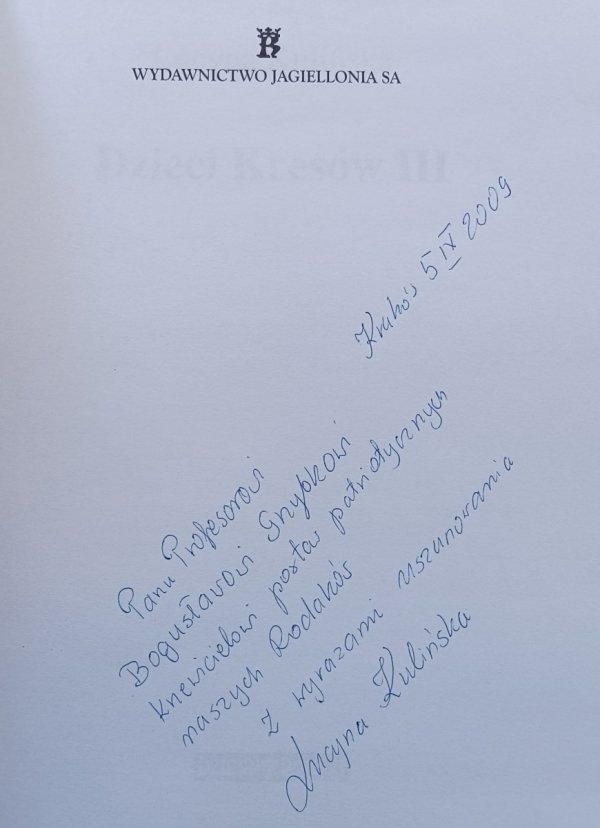 WYDAWNICTWO JAGIELLONIA SA
Dzieci Kresów III
Kraków 5 IX 2009
Panu Profesorowi
Bogusławowi Grybkowi
krzewicielowi postaw patriotycznych
naszych Rodaków
z wyrazami uszanowania
Lucyna Kulińska